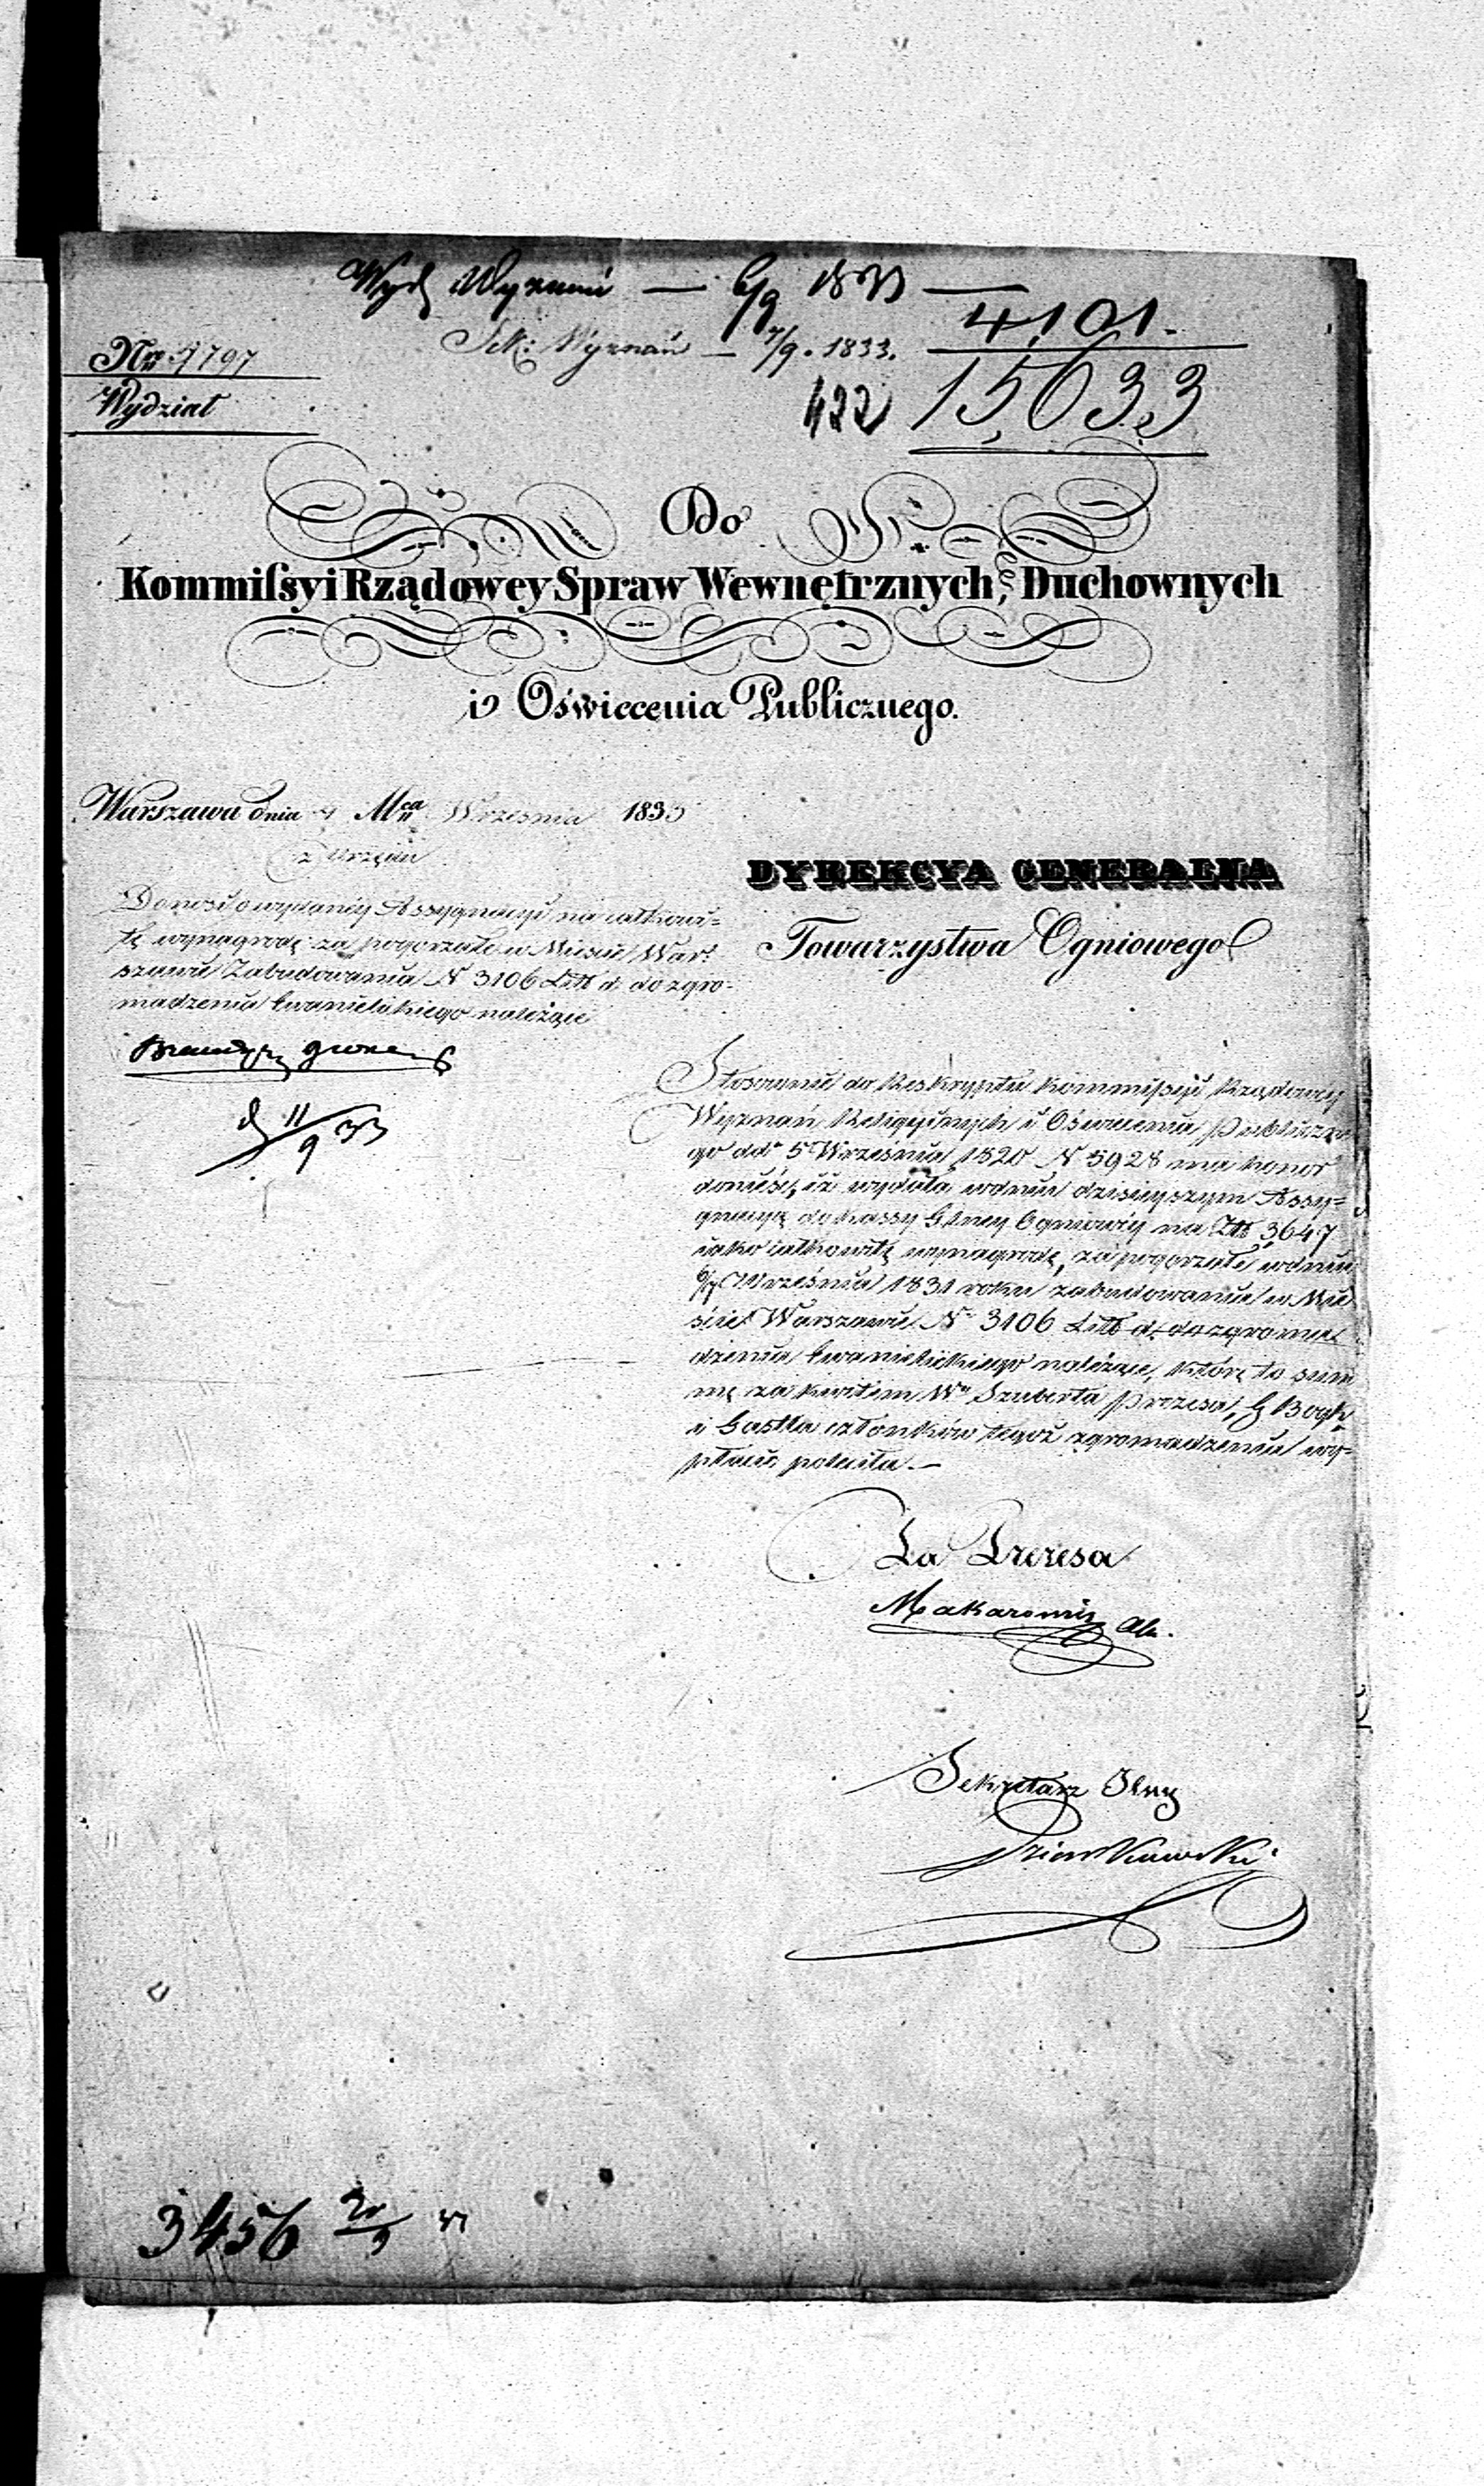 Wydz Wyznań — 6/9 1833 —
4101.
Sek: Wyznań — 7/9. 1833.
Nr 9797
422 15033
Wydział
Do
Kommiſsyi Rządowey Spraw Wewnętrznych, Duchownych
i Oświecenia Publicznego.
Warszawa dnia 4 Mca Września 1833
z urzędu
Donosi o wydaney Assygnacyi na całkowi=
tę wynagrodę za pogorzałe w Mieście War=
szawie Zabudowania N 3106 Litt d. do zgro-
madzenia Ewanielickiego należące
d 11/9 33
DYREKCYA GENERALNA
Towarzystwa Ogniowego
Stosownie do Reskryptu Kommiſsyi Rządowey
Wyznań Religiynych i Oświecenia Publiczne
go ddo 5 Września 1820 N 5928 ma honor
donieść, iż wydała w dniu dzisieyszym Assy=
gnacyą do Kassy Głney Ogniowey na Złt 3647
iako całkowitę wynagrodę, za pogorzałe w dniu
6/7 Września 1831 roku zabudowania w Mie
ście Warszawie N 3106 Litt d. do zgroma
dzenia Ewanielickiego należące, którę to sum
mę za kwitem Wo Szuberta Prezesa,
i członków tegoż zgromadzenia wy=
płacić poleciła.—
Za Prezesa
Makarowicz
Sekretarz Jlny
3456 33